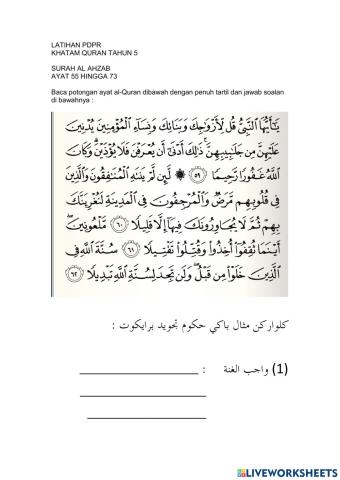 LATIHAN PDPR
KHATAM QURAN TAHUN 5
SURAH AL AHZAB
AYAT 55 HINGGA 73
Baca potongan ayat al-Quran dibawah dengan penuh tartil dan jawab soalan
di bawahnya :
يَٰٓأَيُّهَا ٱلنَّبِيُّ قُل لِّأَزْوَٰجِكَ وَبَنَاتِكَ وَنِسَآءِ ٱلْمُؤْمِنِينَ يُدْنِينَ
عَلَيْهِنَّ مِن جَلَٰبِيبِهِنَّ ۚ ذَٰلِكَ أَدْنَىٰٓ أَن يُعْرَفْنَ فَلَا يُؤْذَيْنَ ۗ وَكَانَ
ٱللَّهُ غَفُورًا رَّحِيمًا ٥٩ ۞ لَّئِن لَّمْ يَنتَهِ ٱلْمُنَٰفِقُونَ وَٱلَّذِينَ
فِي قُلُوبِهِم مَّرَضٌ وَٱلْمُرْجِفُونَ فِي ٱلْمَدِينَةِ لَنُغْرِيَنَّكَ
بِهِمْ ثُمَّ لَا يُجَاوِرُونَكَ فِيهَآ إِلَّا قَلِيلًا ٦٠ مَّلْعُونِينَ ۖ
أَيْنَمَا ثُقِفُوٓا۟ أُخِذُوا۟ وَقُتِّلُوا۟ تَقْتِيلًا ٦١ سُنَّةَ ٱللَّهِ فِي
ٱلَّذِينَ خَلَوْا۟ مِن قَبْلُ ۖ وَلَن تَجِدَ لِسُنَّةِ ٱللَّهِ تَبْدِيلًا ٦٢
كلواركن مثال باݢي حكوم تجويد برايكوت :
(1) واجب الغنة :
LIVEWORKSHEETS